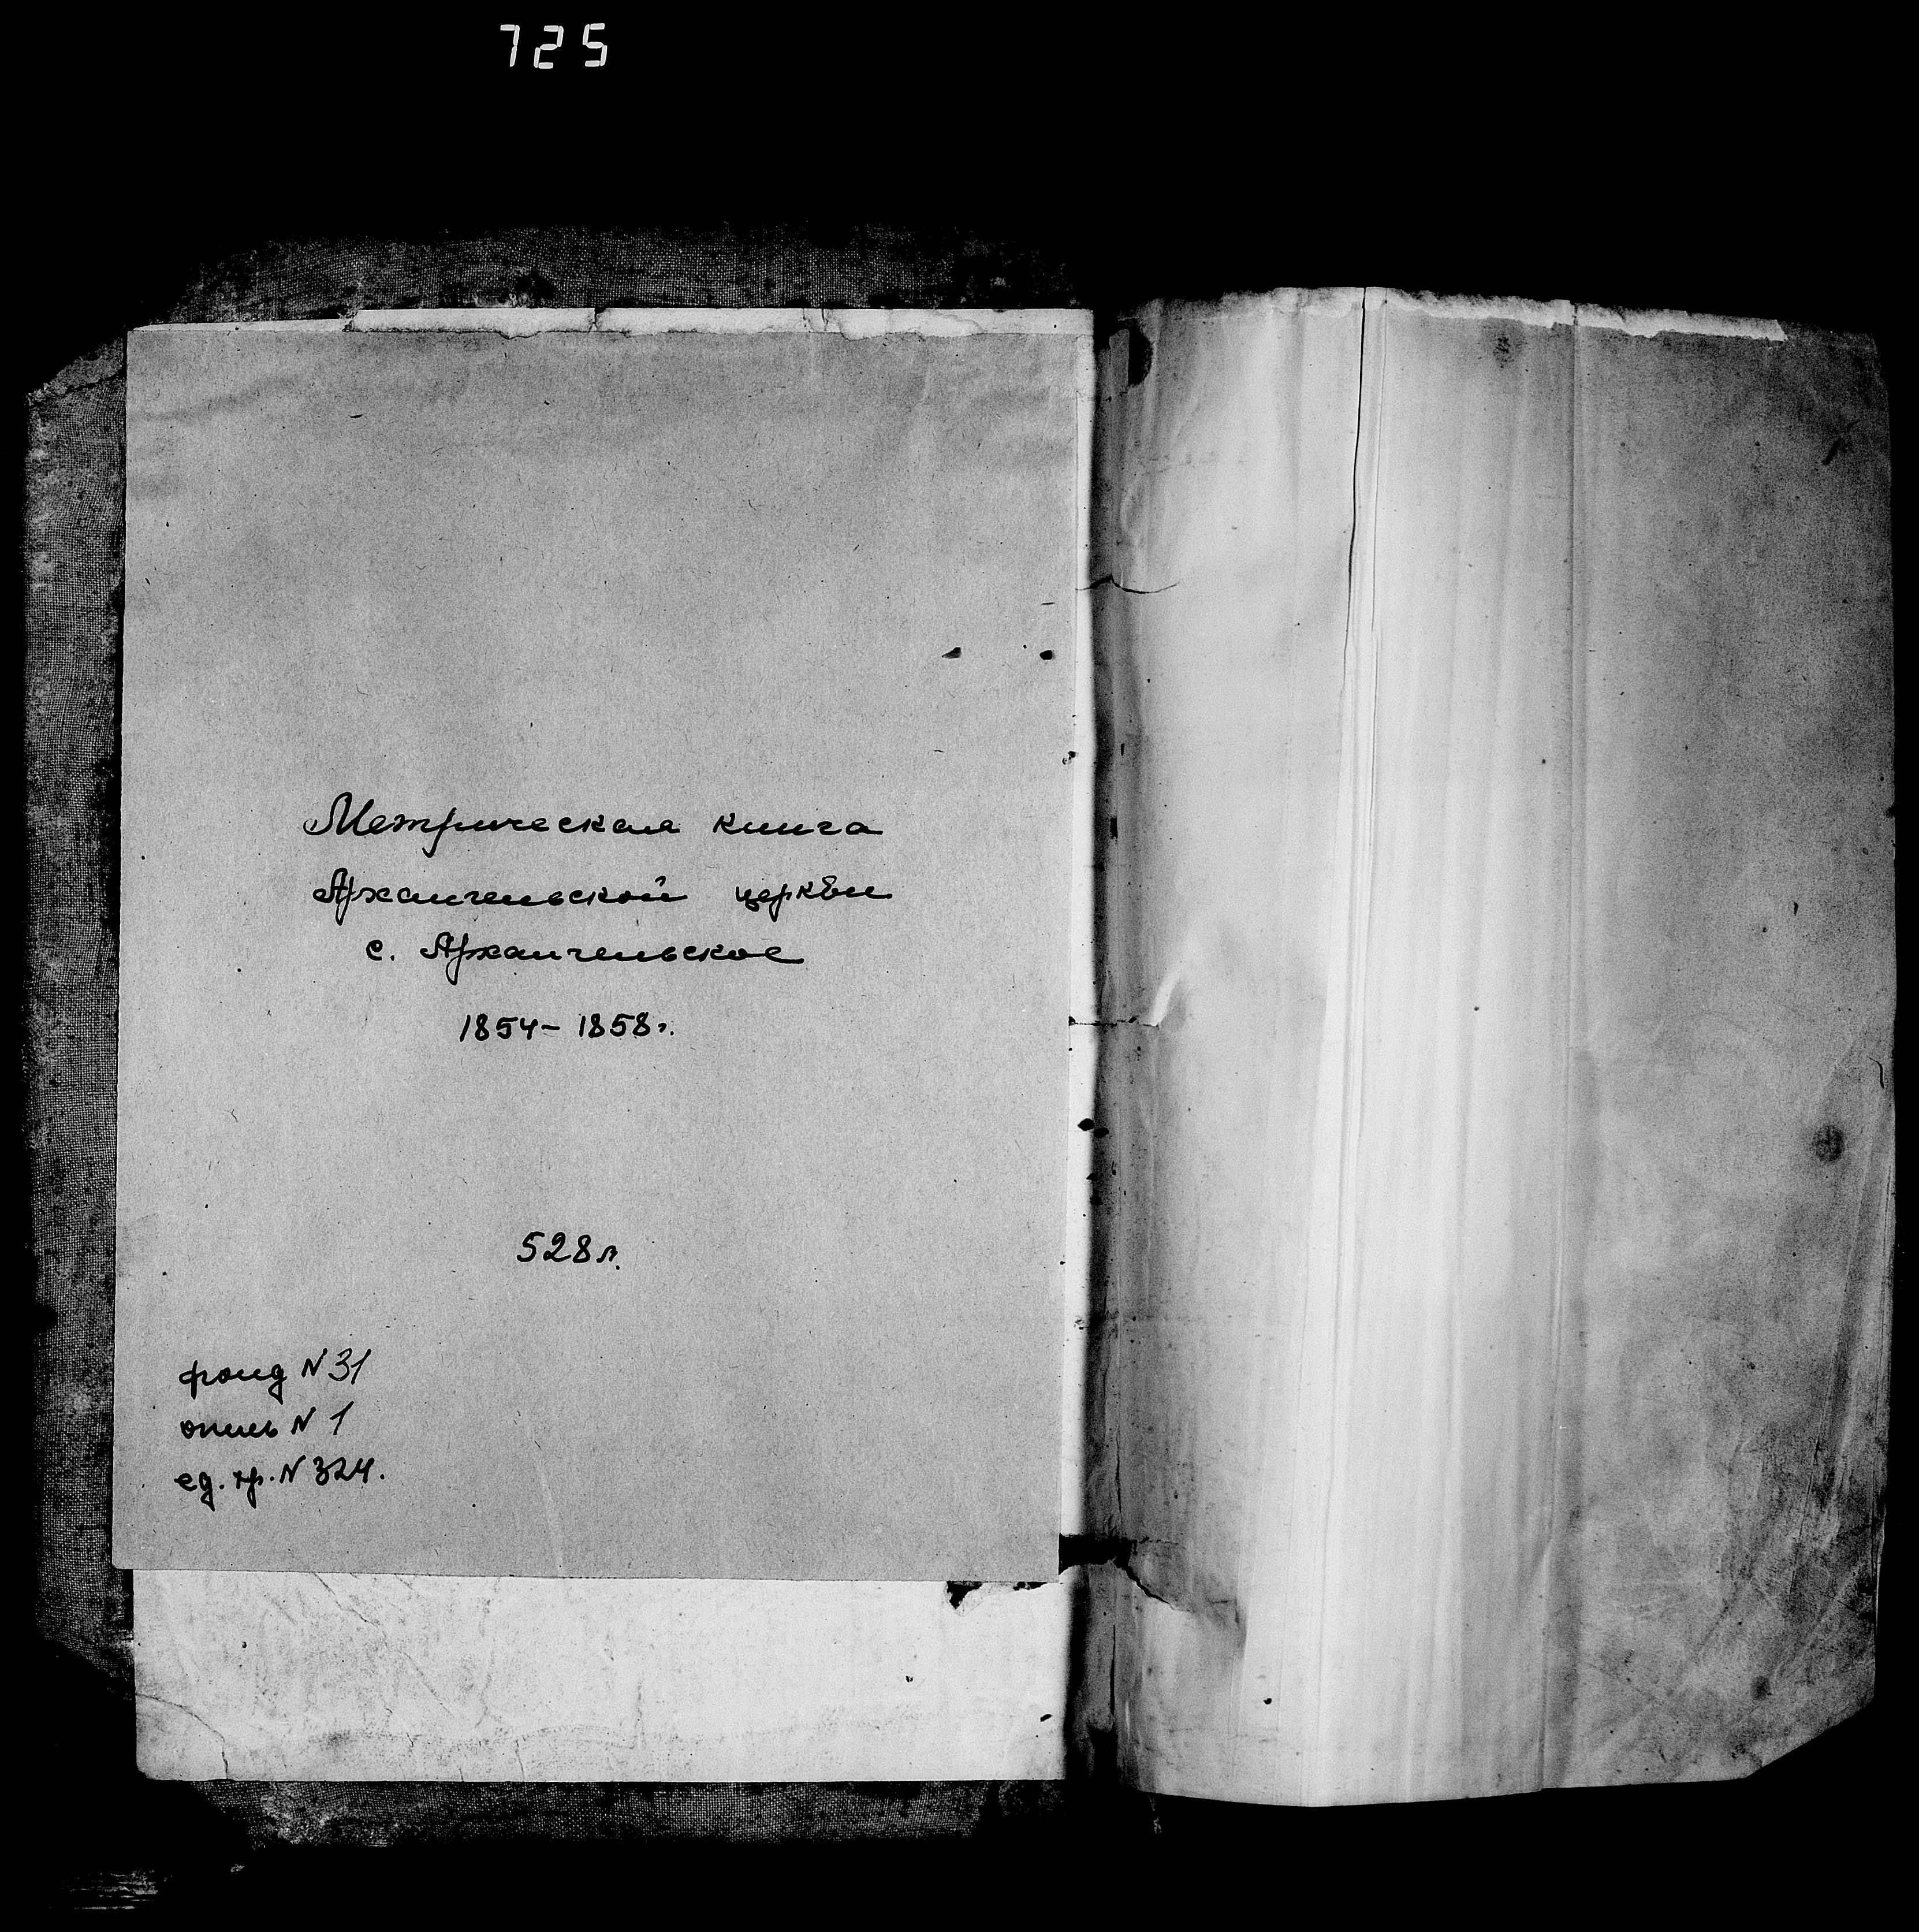 725
Метрическая книга
Архангельской церкви
с. Архангельское
1854 - 1858г.
528л.
фонд N 31
опись N 1
ед. хр. N 324.